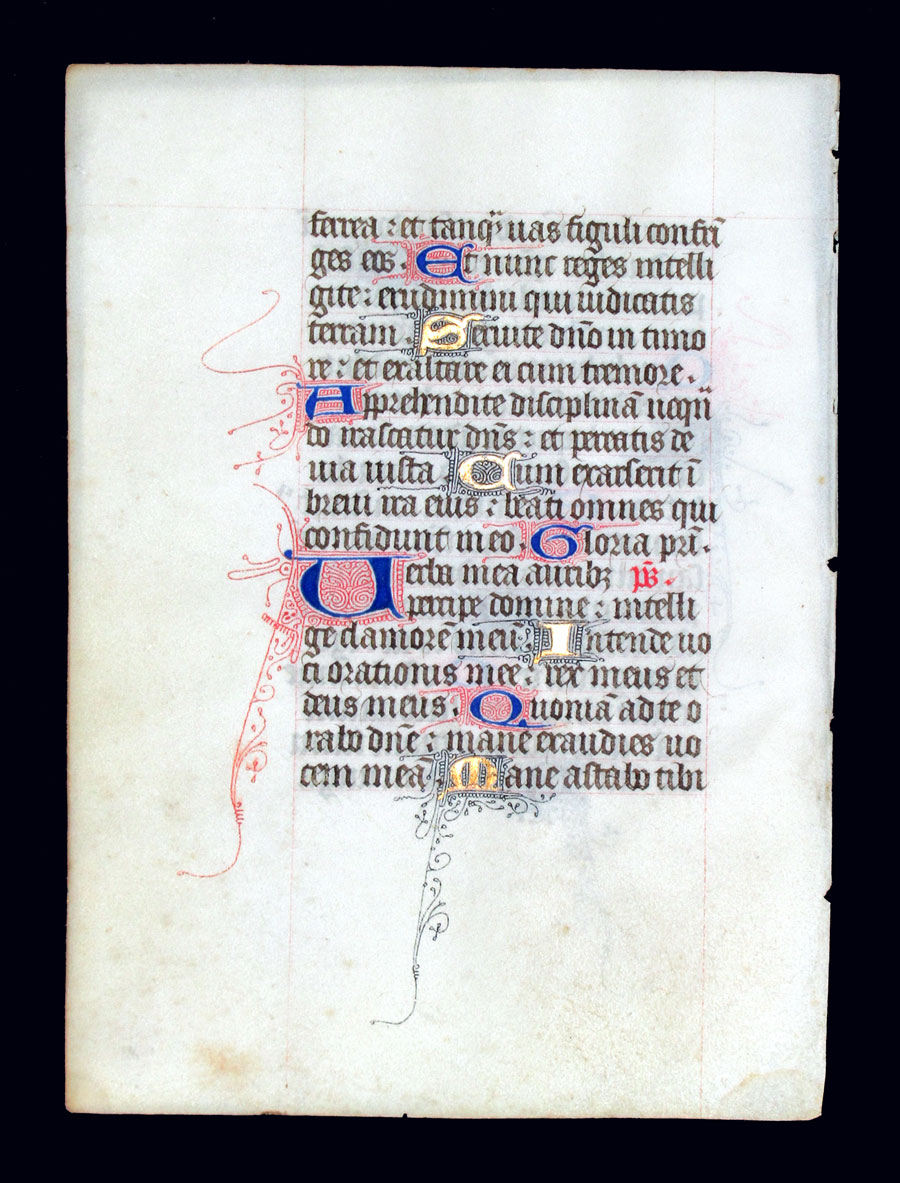 ferrea : et tanq̄ uas figuli confrī
ges eos . Et nunc reges intelli
gite : erudimini qui iudicatis
terram . Seruite dño in timo
re : et exaltate ei cum tremore .
Apprehendite disciplinā neqñ
do irascatur dñs : et pereatis de
uia iusta . Cum exarserit ī
breui ira eius : beati omnes qui
confidunt in eo . Gloria pr̄i .
Uerba mea auribꝫ p̄s .
percipe domine : intelli
ge clamorē meū . Intende uo
ci orationis mee : rex meus et
deus meus . Quoniā ad te o
rabo dñe : mane exaudies uo
cem meā . Mane astabo tibi